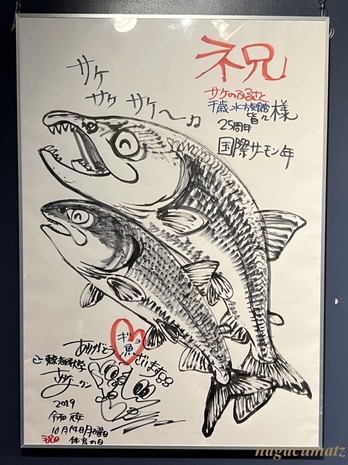 サケ
サケ サケ〜♫
祝
サケのふるさと
千歳水族館
皆々様
25周年
国際サーモン年
ありがとう
ございます
2019
令和元年
10月14日月曜日
祝日 体育の日
nagacamatz